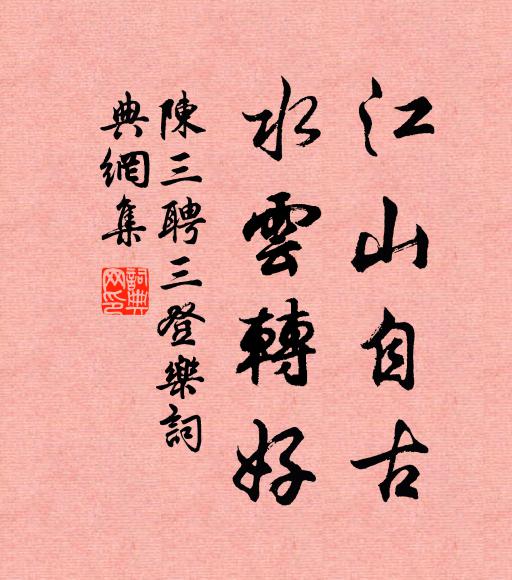 江山自古
水雲轉好
陳三聘三登樂詞
典網集
詞典網印